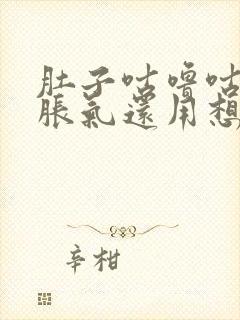 肚子咕嚕咕
脹氣還用想
辛柑